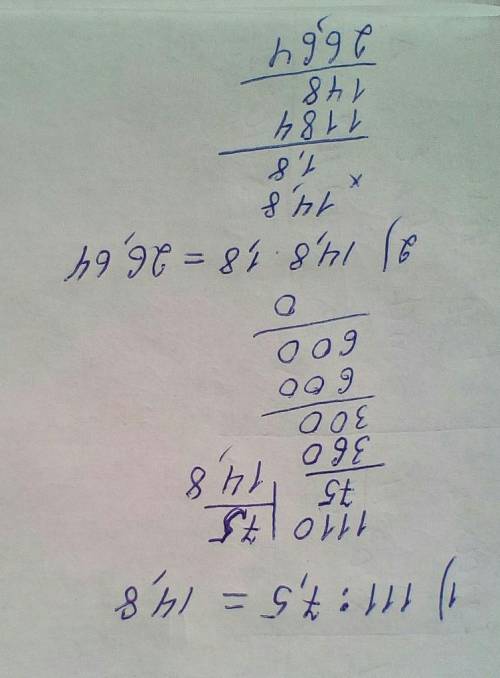 1) 111 : 7,5 = 14,8
1110 | 75
75 14,8
360
300
600
600
0
2) 14,8 · 1,8 = 26,64
× 14,8
1,8
1184
148
26,64